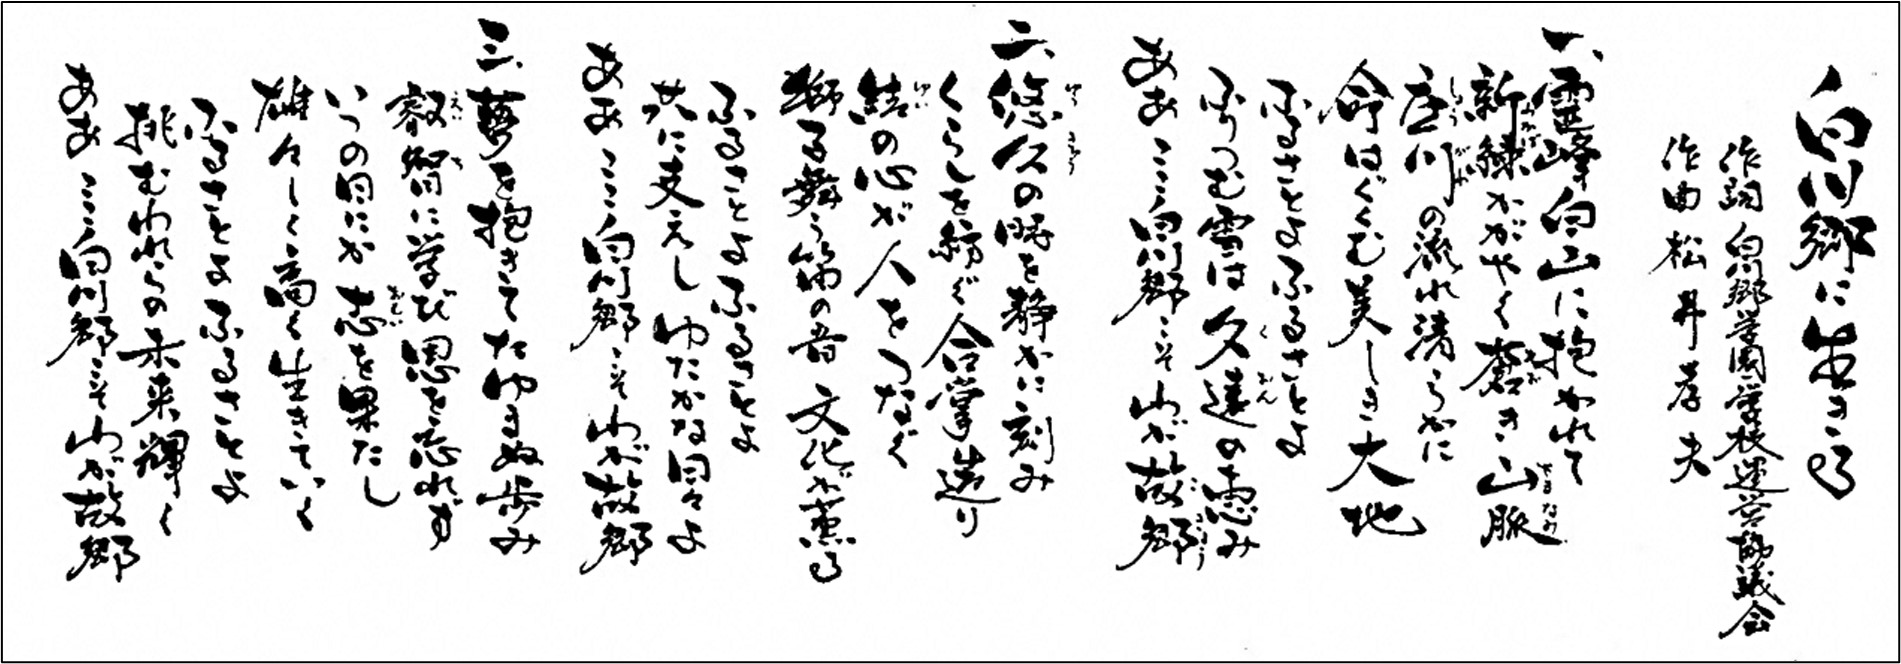 白川郷に生きる
作詞 白川郷学園学校運営協議会
作曲 松井孝夫
一、霊峰白山に抱かれて
新緑かがやく蒼き山脈
庄川の流れ清らかに
命はぐくむ美しき大地
ふるさとよふるさとよ
ふりつむ雪は久遠の恵み
ああ ここ白川郷こそわが故郷
二、悠久の時を静かに刻み
くらしを紡ぐ合掌造り
結の心が人をつなぐ
獅子舞う笛の音 文化が薫る
ふるさとよふるさとよ
共に支えし ゆたかな日々よ
ああ ここ白川郷こそわが故郷
三、夢を抱きてたゆまぬ歩み
叡智に学び恩を忘れず
いつの日にか志を果たし
雄々しく高く生きていく
ふるさとよふるさとよ
挑むわれらの未来輝く
ああ ここ白川郷こそわが故郷